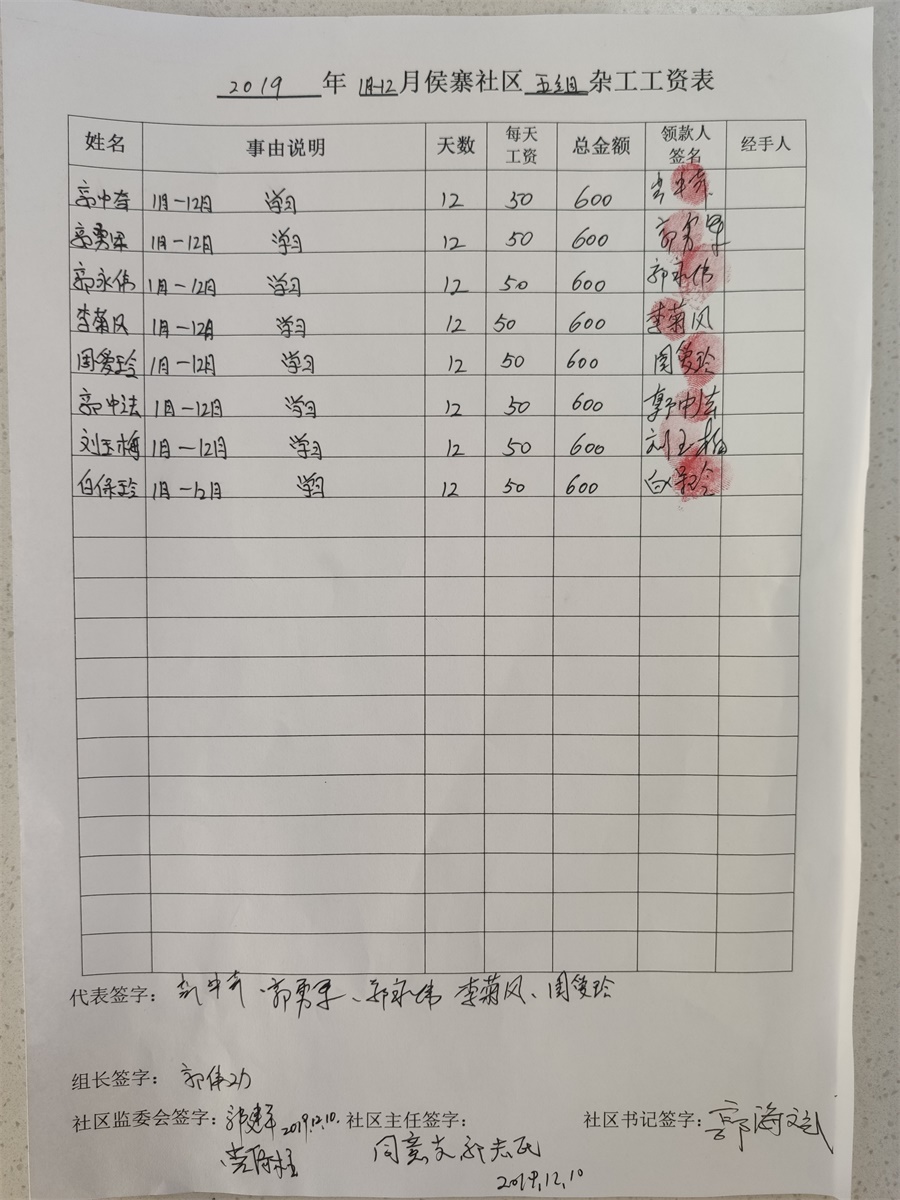 2019 年 1月-12月侯寨社区五组杂工工资表
姓名 事由说明 天数 每天工资 总金额 领款人签名 经手人
郭中奇 1月-12月 学习 12 50 600
郭勇军 1月-12月 学习 12 50 600 郭勇军
郭永伟 1月-12月 学习 12 50 600 郭永伟
李菊风 1月-12月 学习 12 50 600 李菊风
周爱玲 1月-12月 学习 12 50 600 周爱玲
郭中法 1月-12月 学习 12 50 600 郭中法
刘玉梅 1月-12月 学习 12 50 600 刘玉梅
白保玲 1月-12月 学习 12 50 600 白保玲
代表签字: 郭中奇、郭勇军、郭永伟 李菊风、周爱玲
组长签字: 郭伟功
社区监委会签字: 2019.12.10. 社区主任签字: 社区书记签字: 郭海
同意支
2019.12.10